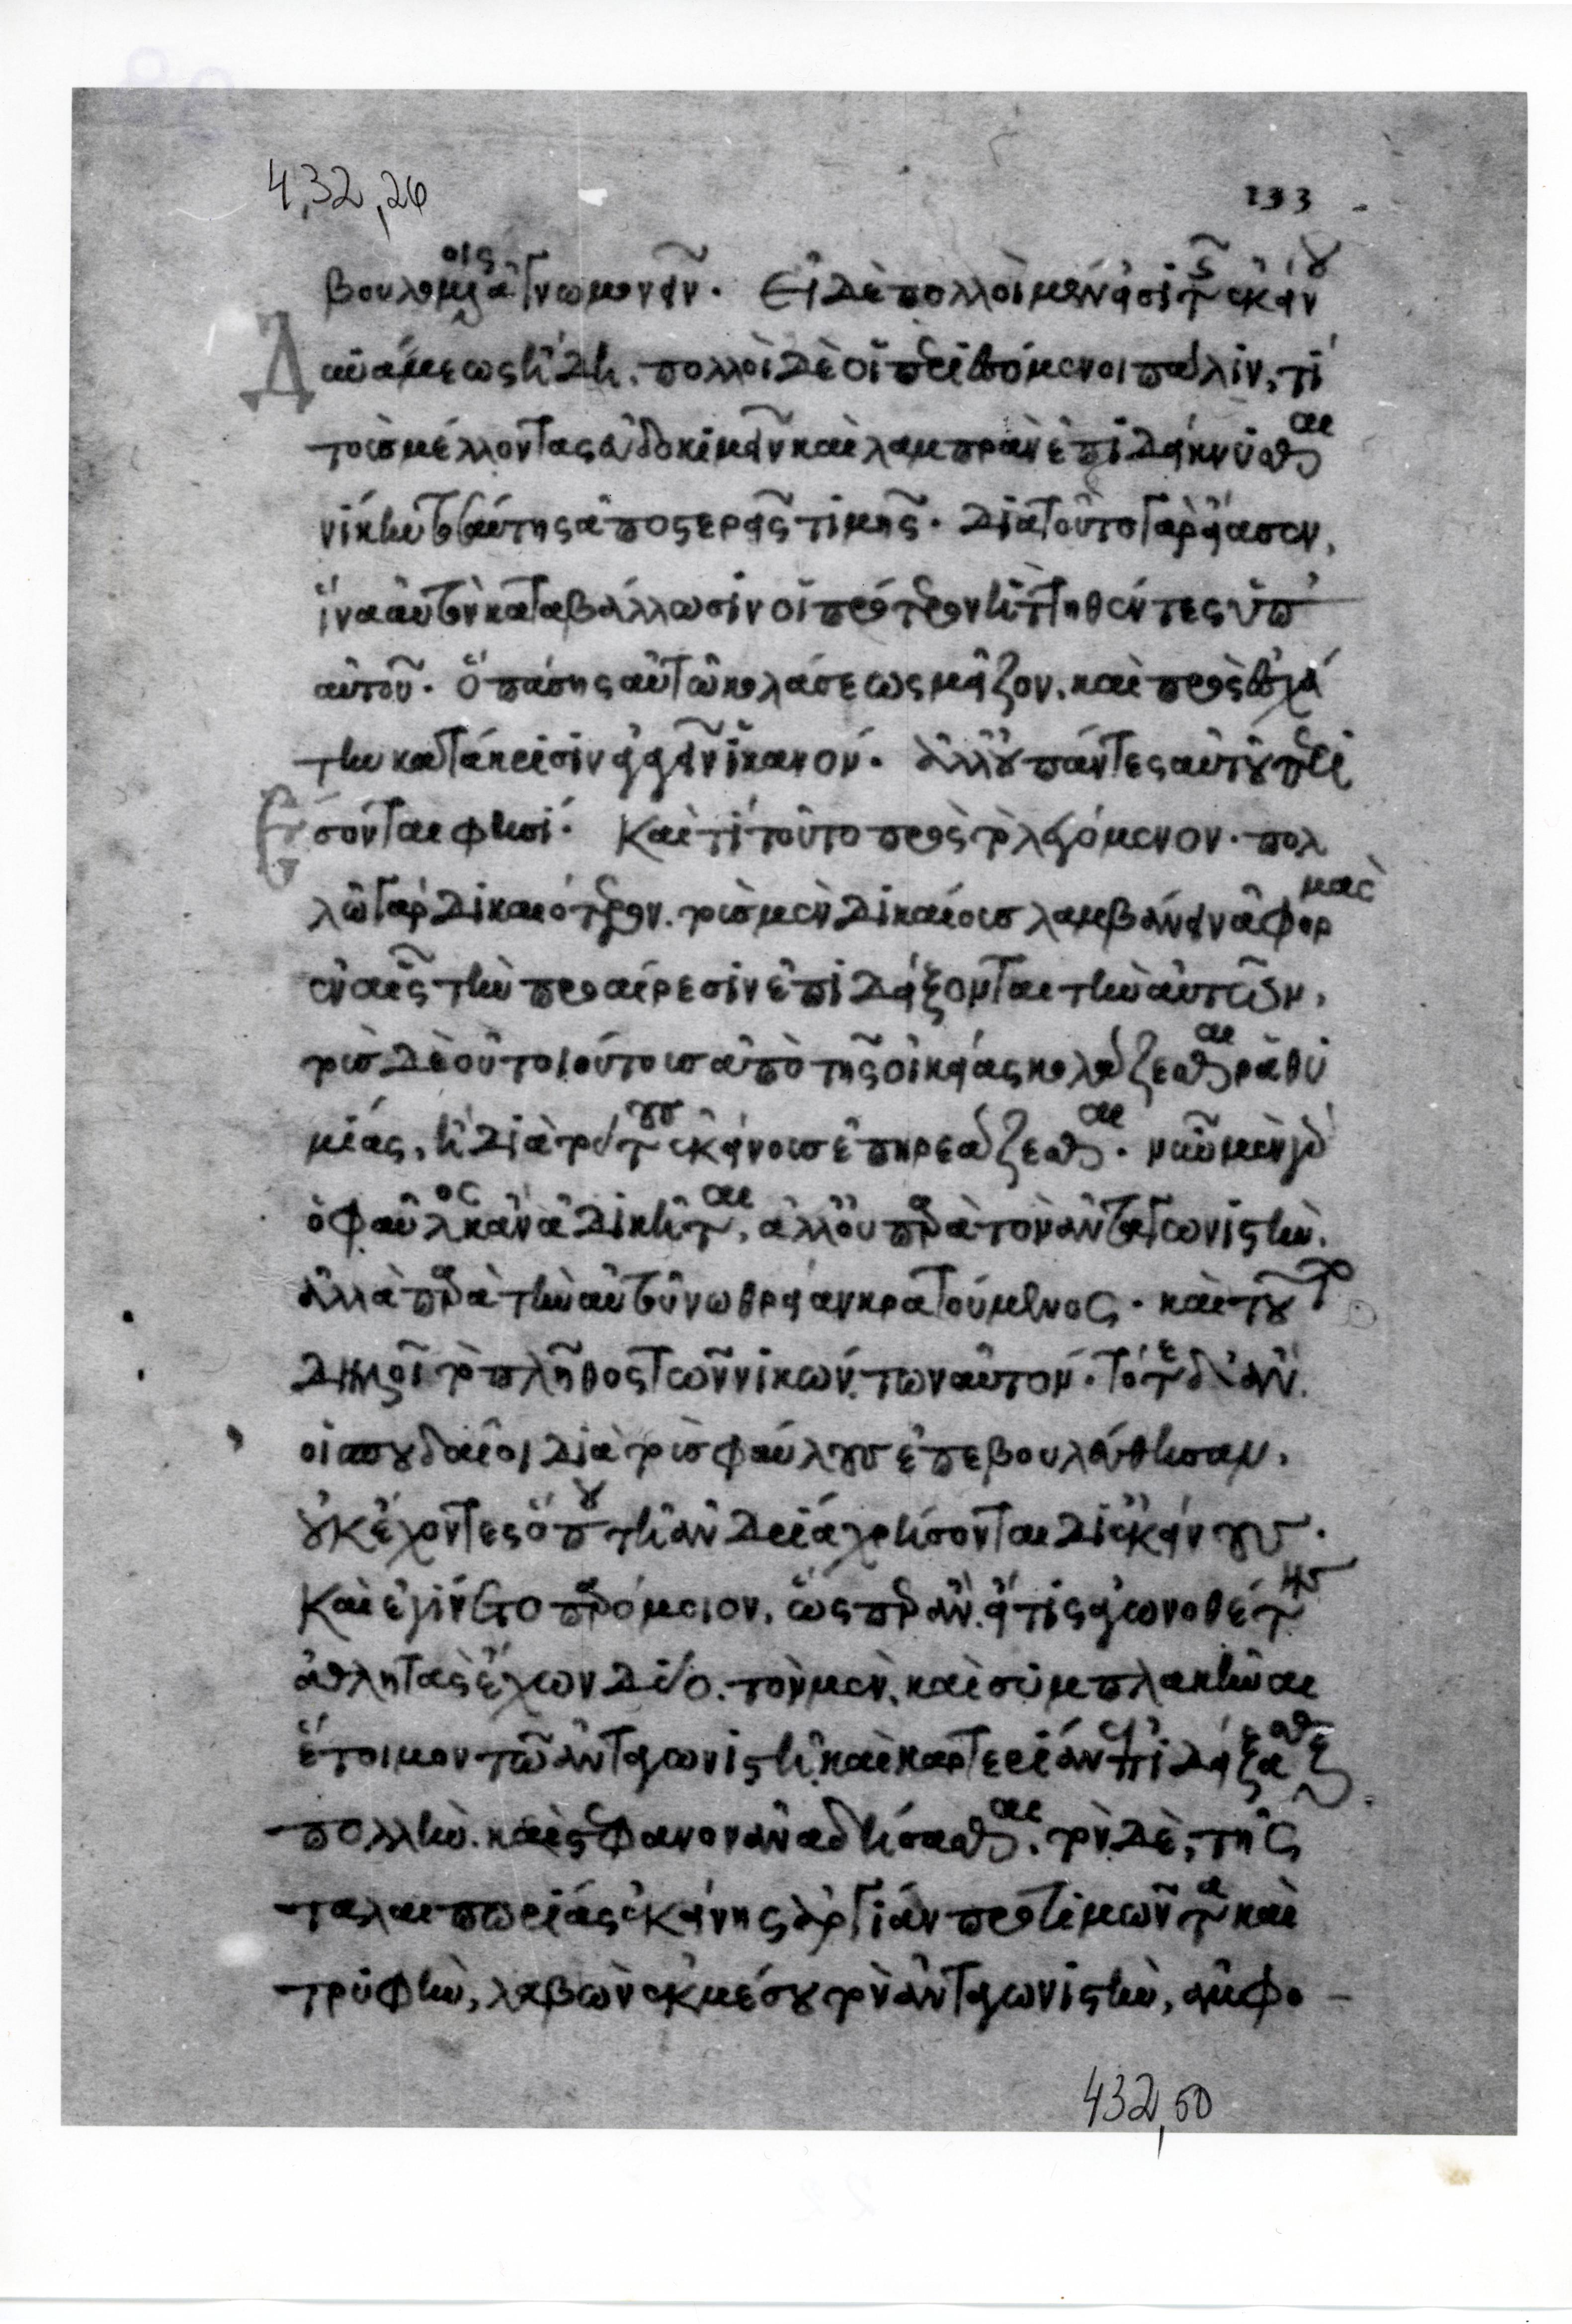 4,32,26
133
βουλομένοις ἀγνωμονεῖν. Εἰ δὲ πολλοὶ μέν εἰσι τῆς ἐκείνου
δυνάμεως ἤδη. πολλοὶ δὲ οἱ περιεσόμενοι πάλιν, τί
τοὺς μέλλοντας εὐδοκιμεῖν καὶ λαμπρὰν ἐπιδείκνυσθαι
νίκην ταύτης ἀποστερεῖς τιμῆς. διὰ τοῦτο γὰρ εἴασεν,
ἵνα αὐτὸν καταβάλλωσιν οἱ πρότερον ἡττηθέντες ὑπ'
αὐτοῦ. ὃ πάσης αὐτῷ κολάσεως μεῖζον. καὶ πρὸς ἐσχά
την κατάκρισιν ἀγαγεῖν ἱκανόν. ἀλλ' οὐ πάντες αὐτοῦ περι
έσονται φησί. Καὶ τί τοῦτο πρὸς τὸ λεγόμενον. πολ
λῷ γὰρ δικαιότερον. τοὺς μὲν δικαίους λαμβάνειν ἀφορμὰς
ἐν αἷς τὴν προαίρεσιν ἐπιδείξονται τὴν αὐτῶν,
τοὺς δὲ οὐ τοιούτους ἀπὸ τῆς οἰκείας κολάζεσθαι ῥαθυ
μίας, ἢ διὰ τούτους ἐκείνους ἐπηρεάζεσθαι. νῦν μὲν γὰρ
ὁ φαῦλος κἂν ἀδικῆται, ἀλλ' οὐ παρὰ τὸν ἀνταγωνιστὴν.
ἀλλὰ παρὰ τὴν αὐτοῦ νωθρείαν κρατούμενος. καὶ τοῦτο
δηλοῖ τὸ πλῆθος τῶν νικώντων αὐτόν. τότε δ' ἂν
οἱ σπουδαῖοι διὰ τοὺς φαύλους ἐπεβουλεύθησαν,
οὐκ ἔχοντες ὅπου τῇ ἀνδρείᾳ χρήσονται δι' ἐκείνους.
Καὶ ἐγίνετο παρόμοιον, ὥσπερ ἂν εἴ τις ἀγωνοθέτης
ἀθλητὰς ἔχων δύο. τὸν μὲν, καὶ συμπλακῆναι
ἕτοιμον τῷ ἀνταγωνιστῇ, καὶ καρτερίαν ἐπιδείξασθαι
πολλὴν. καὶ στέφανον ἀναδήσασθαι. τὸν δὲ, τῆς
ταλαιπωρίας ἐκείνης ἀργίαν προτιμῶντα καὶ
τρυφὴν, λαβὼν ἐκ μέσου τὸν ἀνταγωνιστὴν, ἀμφο
432,50